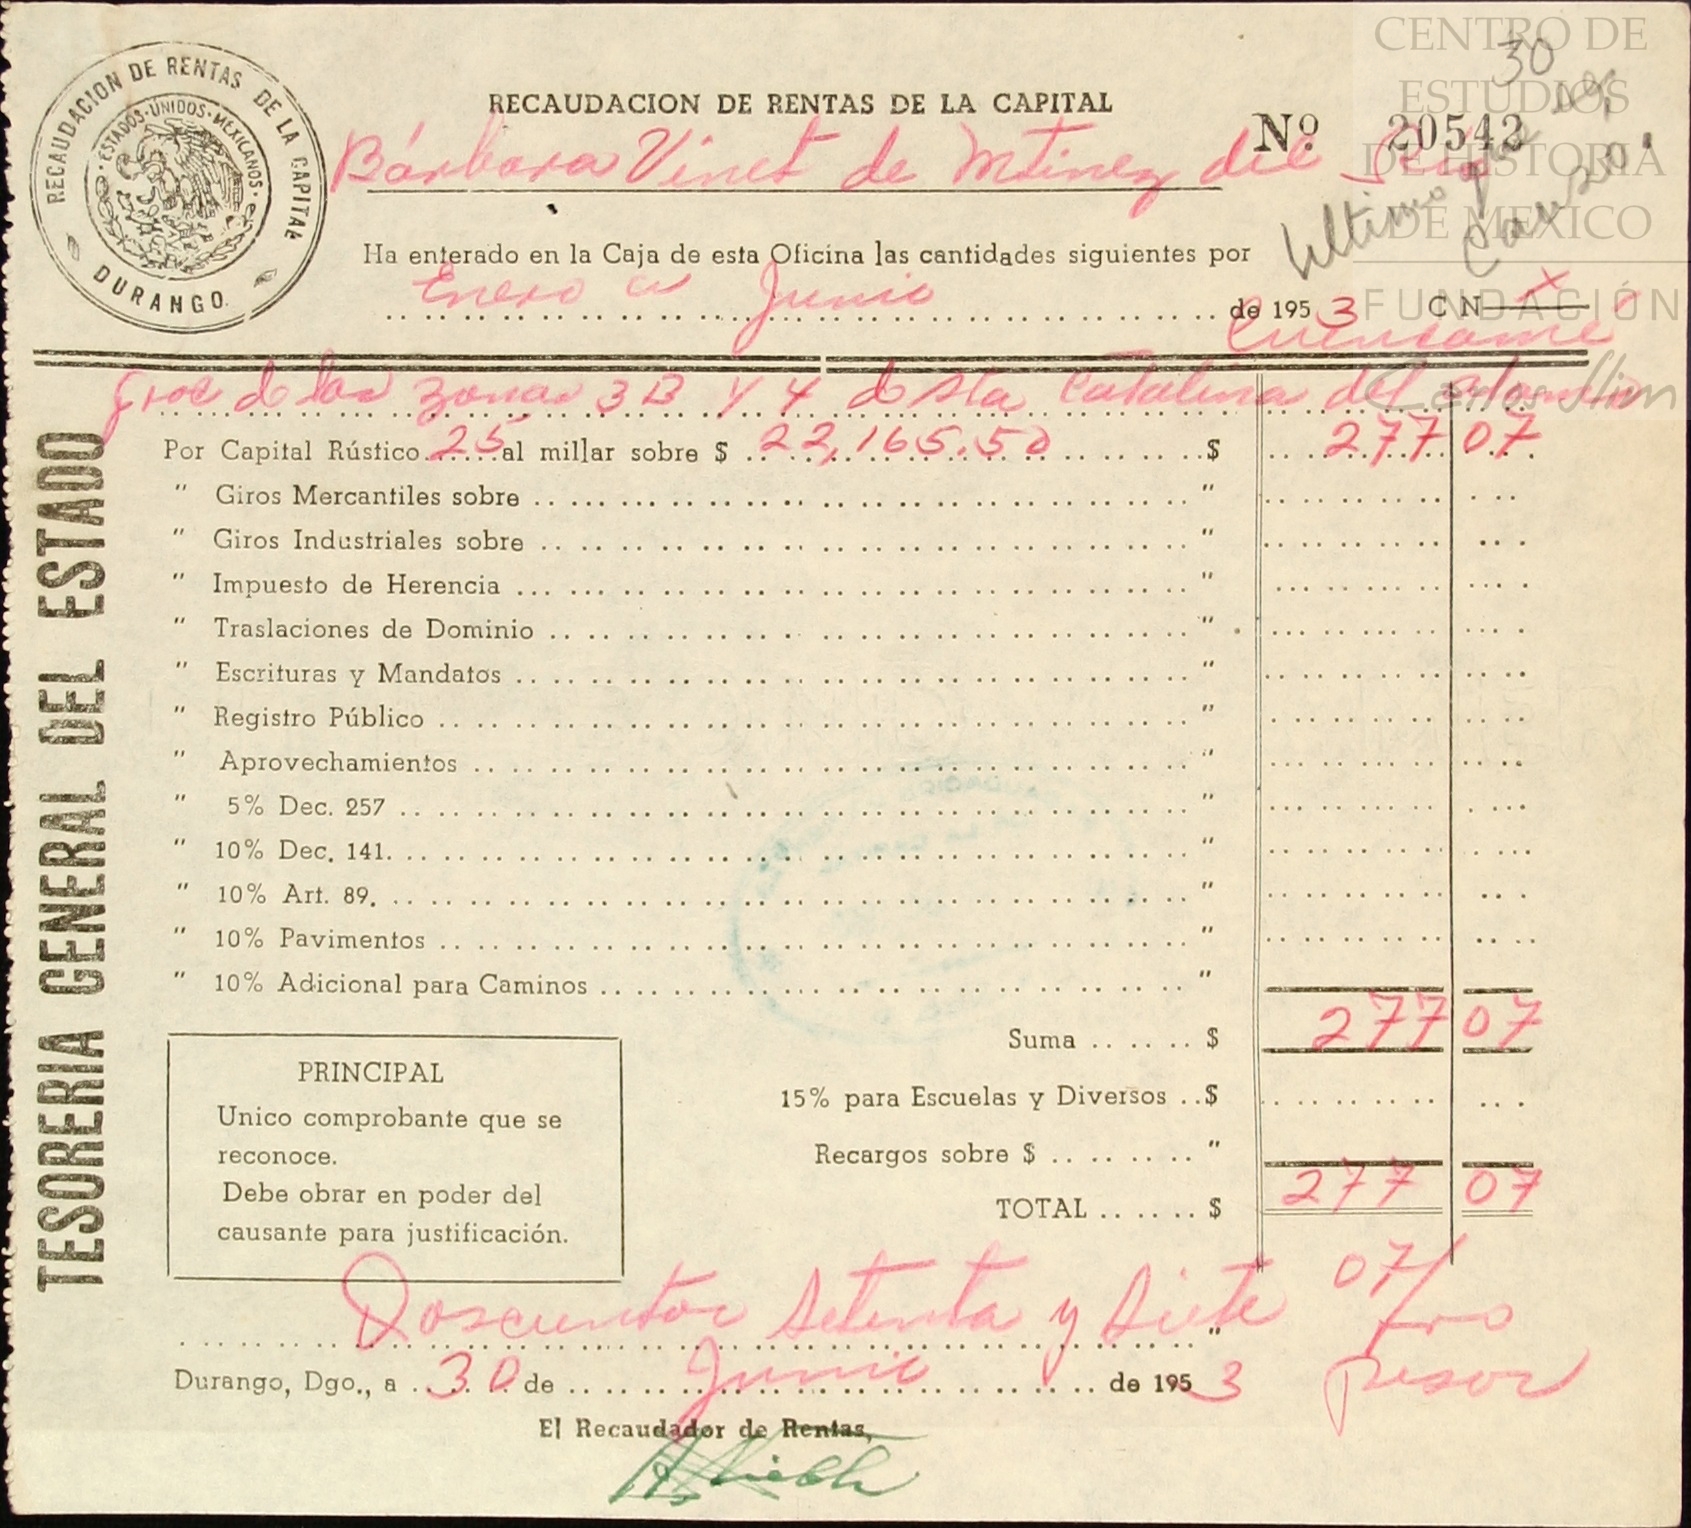 CENTRO DE
ESTUDIOS
DE HISTORIA
DE MEXICO
FUNDACIÓN
Carlos Slim
RECAUDACION DE RENTAS DE LA CAPITAL
DURANGO.
·ESTADOS·UNIDOS·MEXICANOS·
30
Ultimo
RECAUDACION DE RENTAS DE LA CAPITAL
Nº 20542
Bárbara Vinet de Mtinez del Rio
Ha enterado en la Caja de esta Oficina las cantidades siguientes por
Enero a Junio de 1953 C N x
Cuencamé
de las zonas 3B y 4 de Sta Catalina del Alamo
Por Capital Rústico 25 al millar sobre $ 22,165.50 $ 277 07
" Giros Mercantiles sobre "
" Giros Industriales sobre "
" Impuesto de Herencia "
" Traslaciones de Dominio "
" Escrituras y Mandatos "
" Registro Público "
" Aprovechamientos "
" 5% Dec. 257 "
" 10% Dec. 141. "
" 10% Art. 89. "
" 10% Pavimentos "
" 10% Adicional para Caminos "
Suma $ 277 07
15% para Escuelas y Diversos $
Recargos sobre $ "
TOTAL $ 277 07
PRINCIPAL
Unico comprobante que se
reconoce.
Debe obrar en poder del
causante para justificación.
Doscientos setenta y siete 07/
pesos
Durango, Dgo., a 30 de Junio de 1953
El Recaudador de Rentas,
TESORERIA GENERAL DEL ESTADO